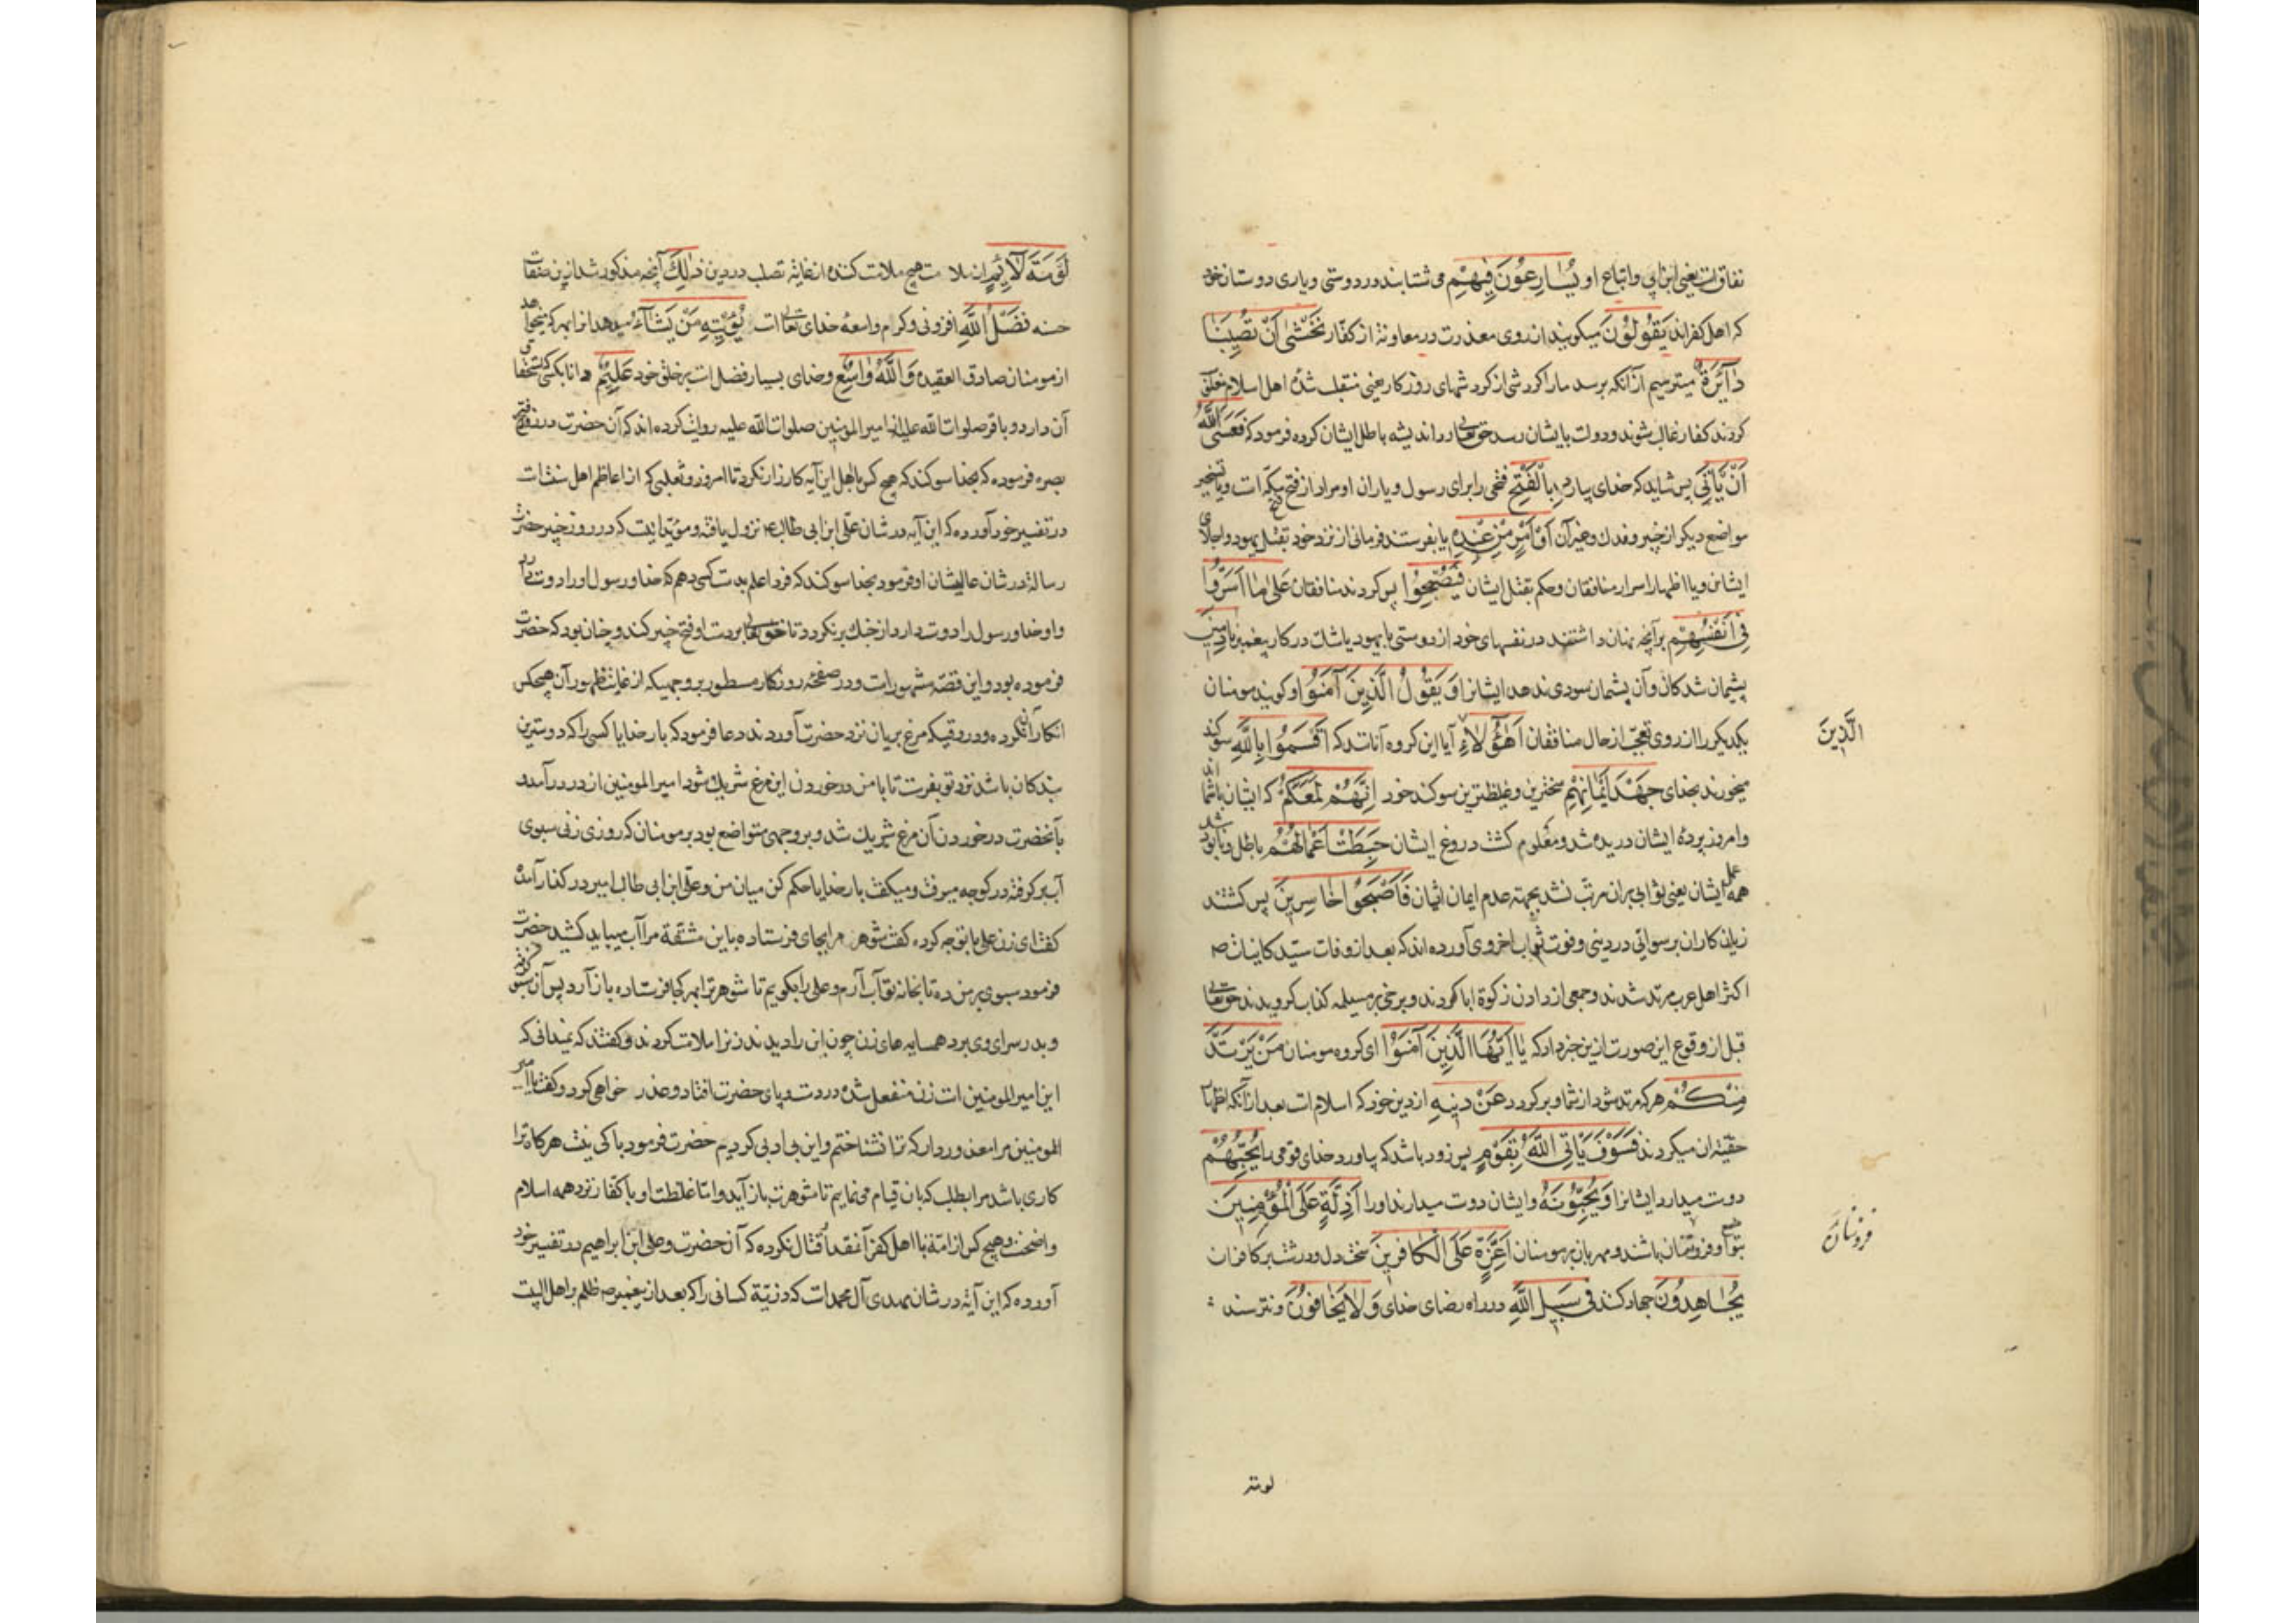 نفاقست یعنی ابن ابی و اتباع او یُسَارِعُونَ فِیهِمْ می شتابند در دوستی و یاری دوستان خود
که اهل کفراند یَقُولُونَ میکویند از روی معذرت در معاونة از کفّار نَخْشَى أَنْ تُصِیبَنَا
دَآئِرَةٌ میترسیم از آنکه برسد ما را کردشی از کردشهای روزکار یعنی منقلب شده اهل اسلام مغلوب
کردند کفار غالب شوند و دولت بایشان رسد حق تعالی رد اندیشه باطل ایشان کرده فرمود که فَعَسَى اللَّهُ
أَنْ یَأْتِیَ پس شاید که خدای بیارد بِالْفَتْحِ فتحی را برای رسول و یاران او مراد از فتح مکّه است و یا تسخیر
مواضع دیکر از خیبر و فدک و غیر آن أَوْ أَمْرٍ مِنْ عِنْدِهِ یا بفرستد فرمانی از نزد خود بقتل یهود و اجلای
ایشان و یا اظهار اسرار منافقان و حکم بقتل ایشان فَیُصْبِحُوا پس کردند منافقان عَلَى مَا أَسَرُّوا
فِی أَنْفُسِهِمْ بر آنچه پنهان داشتند در نفسهای خود از دوستی با یهود یا شک در کار پیغمبر نَادِمِینَ
پشیمان شدکان و آن پشیمان سودی ندهد ایشانرا وَ یَقُولُ الَّذِینَ آمَنُوا و کویند مومنان
الَّذِینَ
یکدیکر را از روی تعجّب از حال منافقان أَهَؤُلَاءِ آیا این کروه آنانند که أَقْسَمُوا بِاللَّهِ سوکند
میخورند بخدای جَهْدَ أَیْمَانِهِمْ سختترین و غلیظترین سوکند خود إِنَّهُمْ لَمَعَکُمْ که ایشان با شما اند
و امروز پردهٔ ایشان دریده شد و معلوم کشت دروغ ایشان حَبِطَتْ أَعْمَالُهُمْ باطل و نابود شد
همه عمل ایشان یعنی ثوابی بر آن مرتب نشد بجهته عدم ایمان ایشان فَأَصْبَحُوا خَاسِرِینَ پس کشتند
زیان کاران برسوائی در دینی و فوت ثواب اخروی آورده اند که بعد از وفات سیّد کاینات ص
اکثر اهل عرب مرتد شدند و جمعی از دادن زکوة ابا کردند و برخی بر مسیلمه کذاب کرویدند حق تعالی
قبل از وقوع این صورت ازین خبر داد که یَا أَیُّهَا الَّذِینَ آمَنُوا ای کروه مومنان مَنْ یَرْتَدَّ
مِنْکُمْ هر که مرتد شود از شما و بر کردد عَنْ دِینِهِ از دین خود که اسلام است بعد از آنکه اظهار
حقیّة آن میکردند فَسَوْفَ یَأْتِی اللَّهُ بِقَوْمٍ پس زود باشد که بیاورد خدای قومی را یُحِبُّهُمْ
دوست میدارد ایشانرا وَ یُحِبُّونَهُ و ایشان دوست میدارند او را أَذِلَّةٍ عَلَى الْمُؤْمِنِینَ
فروتنان
متواضع و فروتنان باشند و مهربان بر مومنان أَعِزَّةٍ عَلَى الْکَافِرِینَ سخت دل و درشت بر کافران
یُجَاهِدُونَ جهاد کنند فِی سَبِیلِ اللَّهِ در راه رضای خدای وَ لَا یَخَافُونَ و نترسند
لومة
لَوْمَةَ لَآئِمٍ از ملامت هیچ ملامت کننده از غایة تصلب در دین ذَلِکَ آنچه مذکور شد ازین صفات
حسنه فَضْلُ اللَّهِ افزونی و کرم واسعهٔ خدای تعالی است یُؤْتِیهِ مَنْ یَشَآءُ میدهد انرا بهر که میخواهد
از مومنان صادق العقیده وَاللَّهُ وَاسِعٌ و خدای بسیار فضل است بر خلق خود عَلِیمٌ دانا بکسی که استحقاق
آن دارد و باقر صلوات الله علیه از امیر المومنین صلوات الله علیه روایت کرده اند که آن حضرت در روز فتح
بصره فرموده که بخدا سوکند که هیچ کس با اهل این آیه کارزار نکرد تا امروز و ثعلبی که از اعاظم اهل سنت است
در تفسیر خود آورده که این آیه در شان علی ابن ابی طالب ع نزول یافته و مویّد اینست که در روز خیبر حضرت
رسالة در شان عالیشان او فرمود بخدا سوکند که فردا علم بدست کسی دهم که خدا و رسول او را دوست دارد
و او خدا و رسول را دوست دارد از جنک برنکردد تا حق تعالی بر دست او فتح خیبر کند و چنان بود که حضرت
فرموده بود و این قصّه مشهور است و در صفحهٔ روزکار مسطور بر وجهیکه از غایت ظهور آن هیچکس
انکار آن نکرده و در وقتیکه مرغ بریان نزد حضرت آوردند دعا فرمود که بار خدایا کسی را که دوسترین
بندکان باشد نزد تو بفرست تا با من در خوردن این مرغ شریک شود امیر المومنین از در درآمد و
با آنحضرت در خوردن آن مرغ شریک شد و بر وجهی متواضع بود بر مومنان که روزی زنی سبوی
آب بر کرفته در کوچه میرفت و میکفت بار خدایا حکم کن میان من و علی ابن ابی طالب امیر در کنار آمده
کفت ای زن علی با تو چه کرده کفت شوهر مرا بجای فرستاده با این مشقة مرا آب میباید کشید حضرت
فرمود سبوی بر من ده تا بخانه تو آب آرم و علی را بکویم تا شوهر ترا بهر کجا فرستاده باز آرد پس آن سبو کرفته
و بدر سرای وی برد همسایه های زن چون این را دیدند زنرا ملامت کردند و کفتند که نمیدانی که
این امیر المومنین است زن منفعل شده در دست و پای حضرت افتاد و عذر خواهی کرد و کفت یا امیر
المومنین مرا معذور دار که ترا نشناختم و این بی ادبی کردیم حضرت فرمود باکی نیست هر کاه ترا
کاری باشد مرا بطلب که بان قیام می نمایم تا شوهرت باز آید و اما غلظت او با کفّار نزد همه اسلام
واضحست و هیچ کس از امّة با اهل کفر آنقدر قتال نکرده که آن حضرت و علی ابن ابراهیم در تفسیر خود
آورده که این آیة در شان مهدی آل محمد است که ذریّة کسانی را که بعد از پیغمبر ص ظلم بر اهل البیت